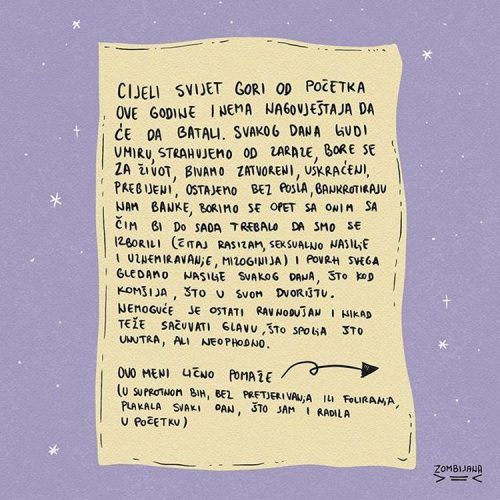 CIJELI SVIJET GORI OD POČETKA
OVE GODINE I NEMA NAGOVJEŠTAJA DA
ĆE DA BATALI. SVAKOG DANA LJUDI
UMIRU, STRAHUJEMO OD ZARAZE, BORE SE
ZA ŽIVOT, BIVAMO ZATVORENI, USKRAĆENI,
PREBIJENI, OSTAJEMO BEZ POSLA, BANKROTIRAJU
NAM BANKE, BORIMO SE OPET SA ONIM SA
ČIM BI DO SADA TREBALO DA SMO SE
IZBORILI (ČITAJ RASIZAM, SEKSUALNO NASILJE
I UZNEMIRAVANJE, MIZOGINIJA) I POVRH SVEGA
GLEDAMO NASILJE SVAKOG DANA, ŠTO KOD
KOMŠIJA, ŠTO U SVOM DVORIŠTU.
NEMOGUĆE JE OSTATI RAVNODUŠAN I NIKAD
TEŽE SAČUVATI GLAVU, ŠTO SPOLJA ŠTO
UNUTRA, ALI NEOPHODNO.
OVO MENI LIČNO POMAŽE
(U SUPROTNOM BIH, BEZ PRETJERIVANJA ILI FOLIRANJA,
PLAKALA SVAKI DAN, ŠTO SAM I RADILA
U POČETKU)
ZOMBIJANA